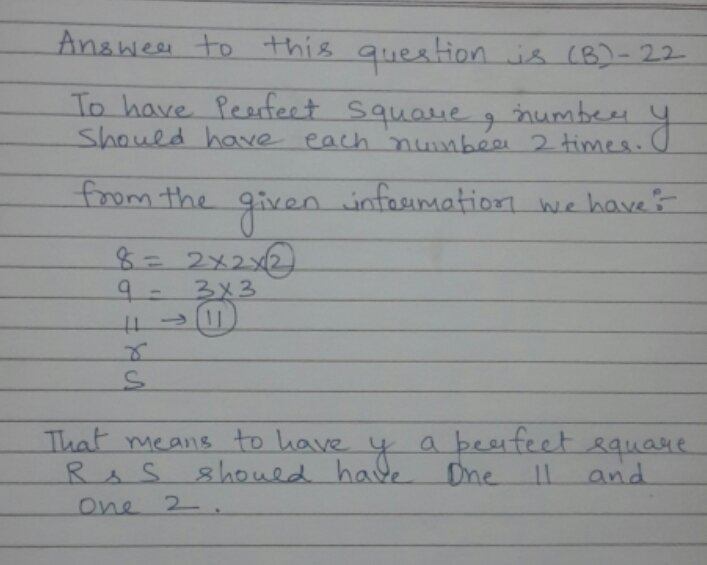 Answer to this question is (B)-22
To have Perfect square, number y
should have each number 2 times.
from the given information we have:-
8 = 2×2×2
9 = 3×3
11 → 11
r
S
That means to have y a perfect square
R & S should have One 11 and
One 2.